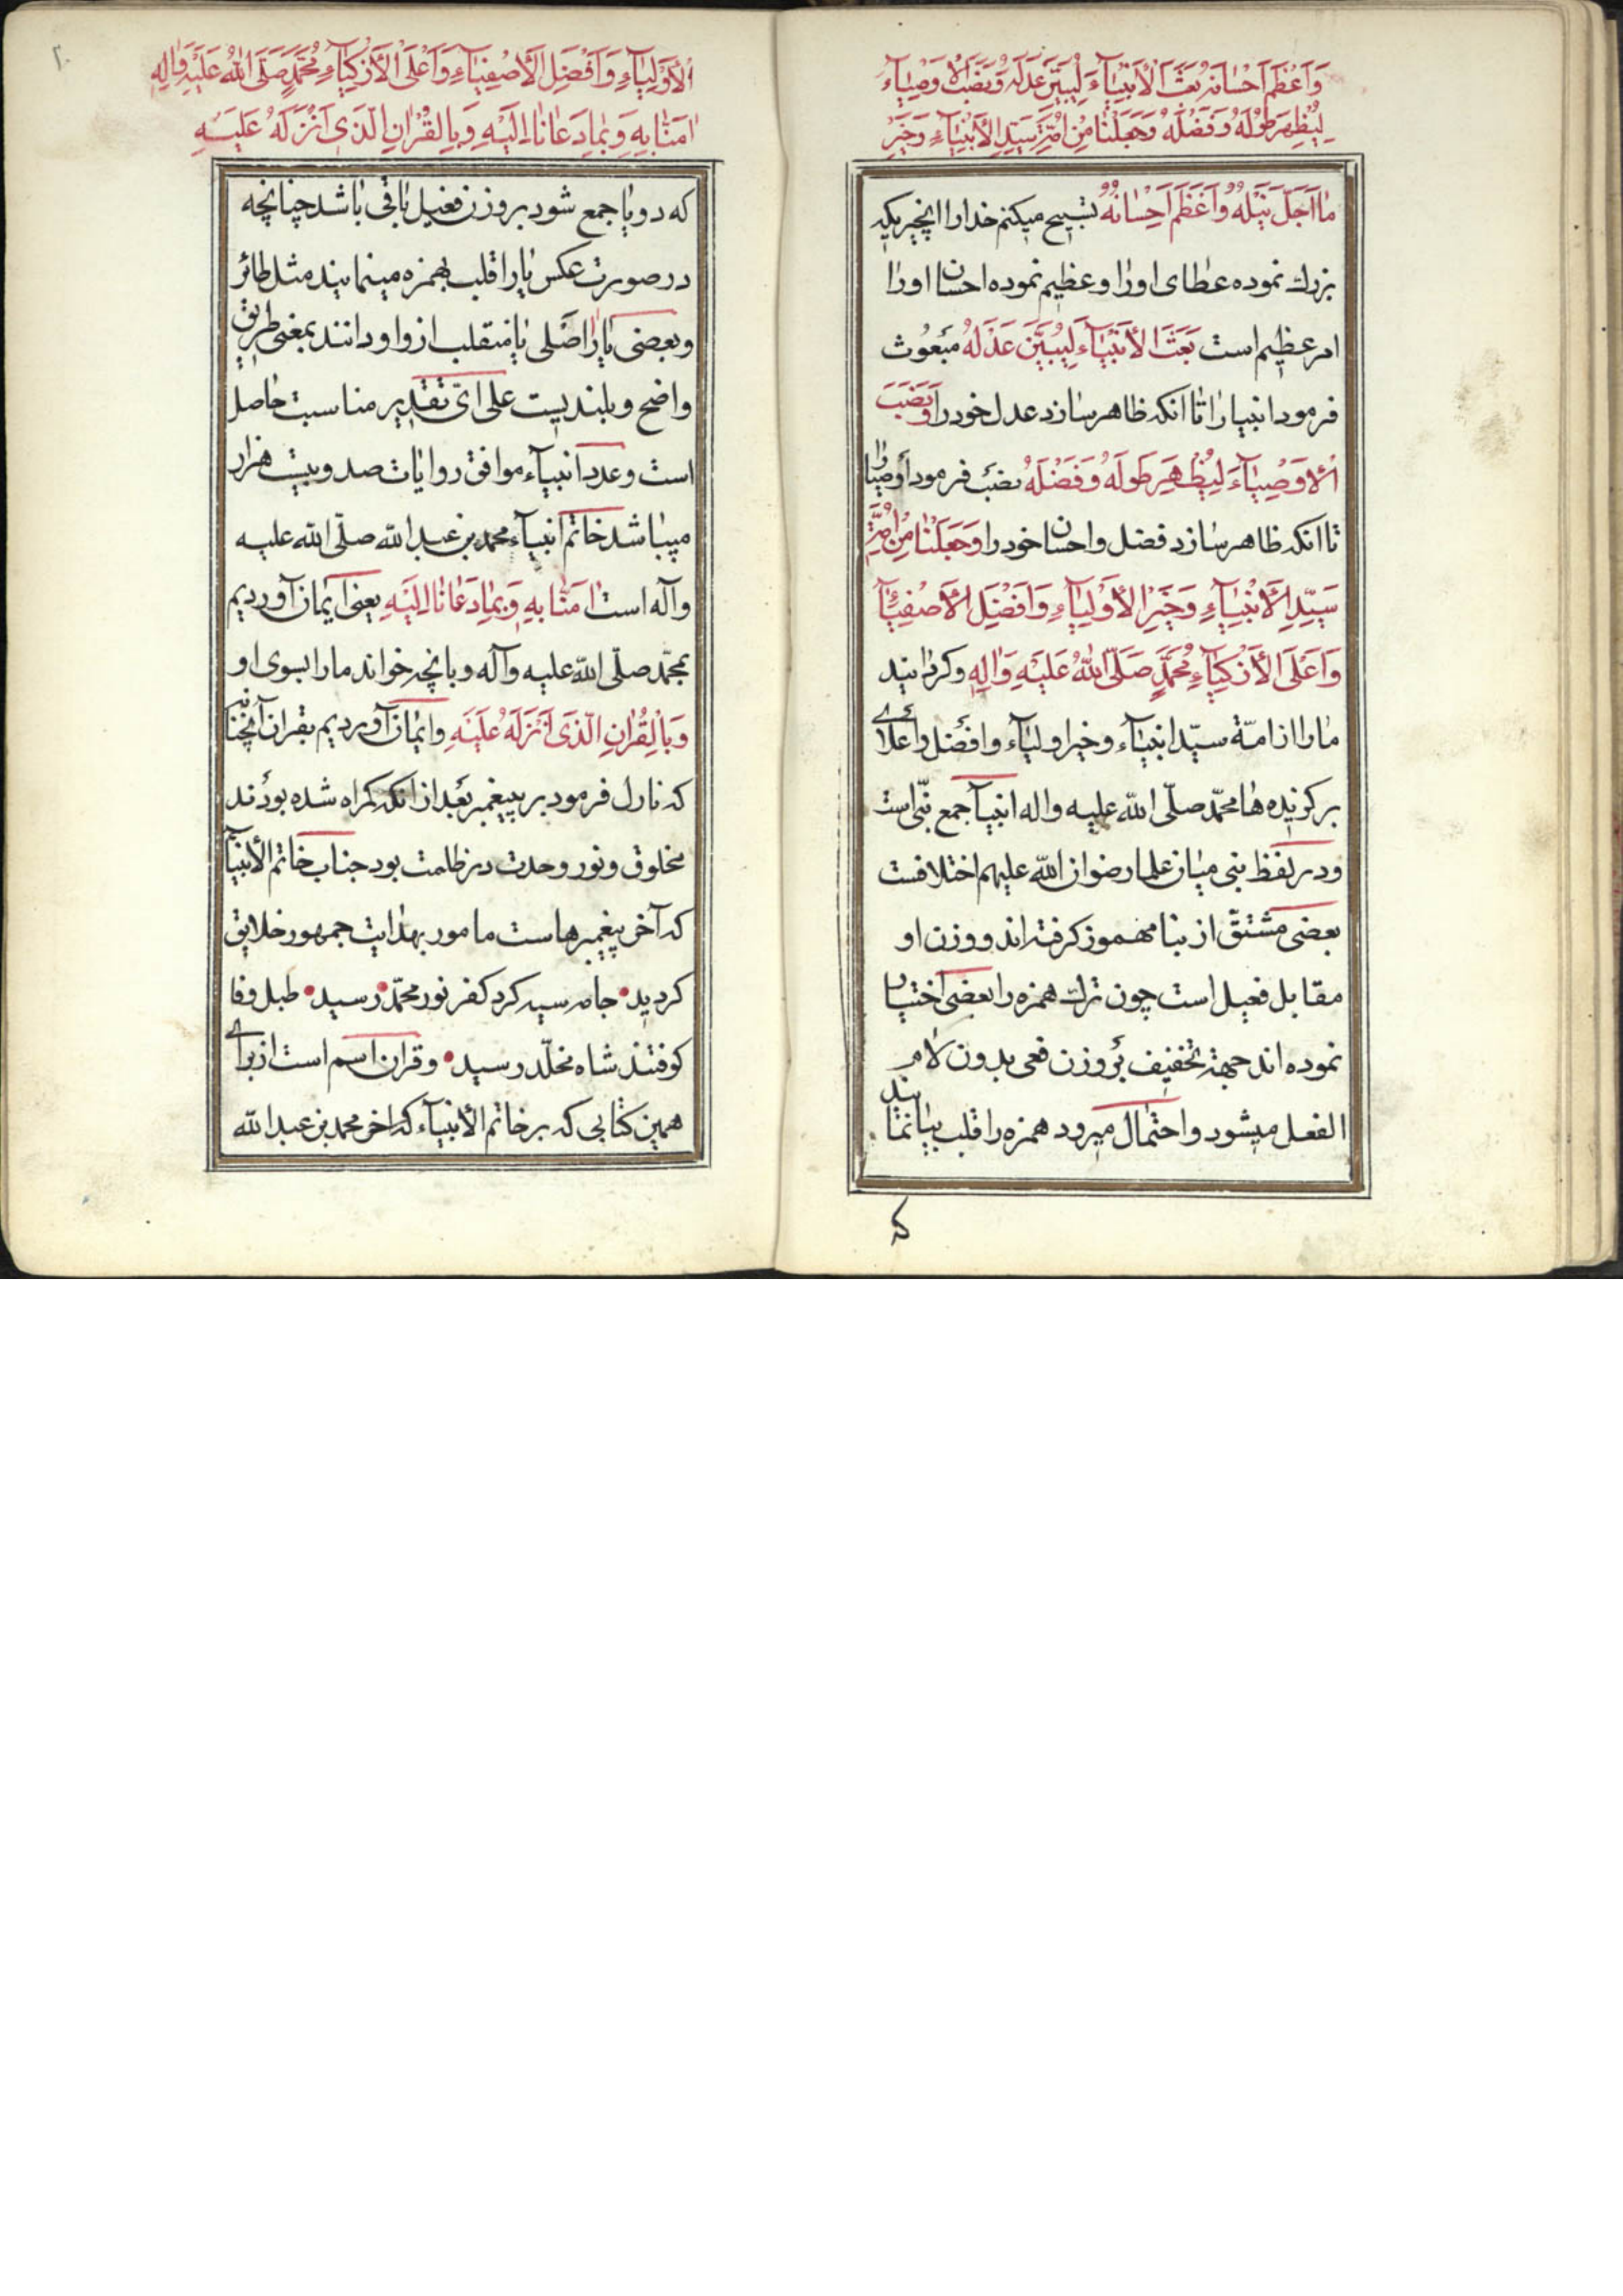 وَاَعْظَمَ اَحْسٰانَهُ بَعَثَ الْاَنْبِيٰآءَ لِيُبَيِّنَ عَدْلَهُ وَنَصَبَ الْاَوْصِيٰآءَ
لِيُظْهِرَ طَوْلَهُ وَفَضْلَهُ وَجَعَلْنٰا مِنْ اُمَّةِ سَيِّدِ الْاَنْبِيٰآءِ وَخَيْرِ
مٰا اَجَلَّ نَيْلَهُ وَاَعْظَمَ اِحْسٰانَهُ تسبیح میکنم خدا را انچیزیکه
بزرك نموده عطای اورا و عظیم نموده احسان اورا
امر عظیم است بَعَثَ الْاَنْبِيٰآءَ لِيُبَيِّنَ عَدْلَهُ مبعوث
فرمود انبیا را تا انکه ظاهر سازد عدل خود را وَنَصَبَ
الْاَوْصِيٰآءَ لِيُظْهِرَ طَوْلَهُ وَفَضْلَهُ نصب فرمود اوصیا را
تا انکه ظاهر سازد فضل و احسان خود را وَجَعَلْنٰا مِنْ اُمَّةِ
سَيِّدِ الْاَنْبِيٰآءِ وَخَيْرِ الْاَوْلِيٰآءِ وَاَفْضَلِ الْاَصْفِيٰآءِ
وَاَعْلَى الْاَزْكِيٰآءِ مُحَمَّدٍ صَلَّى اللّٰهُ عَلَيْهِ وَاٰلِهِ و کردانید
مارا از امّة سیّد انبیآء و خیر اولیآء و افضل و اعلای
برکزیده ها محمّد صلّی اللّه علیه واله انبیآ جمع نبّی است
ودر لفظ نبی میان علما رضوان اللّه علیهم اختلافست
بعضی مشتقّ از بنا مهموز کرفته اند و وزن او
مقابل فعیل است چون ترك همزه را بعضی اختیار
نموده اند جهة تخفیف بروزن فعی بدون لام
الفعل میشود و احتمال میرود همزه را قلب بیا نمایند
که
الْاَوْلِيٰآءِ وَاَفْضَلِ الْاَصْفِيٰآءِ وَاَعْلَى الْاَزْكِيٰآءِ مُحَمَّدٍ صَلَّى اللّٰهُ عَلَيْهِ وَاٰلِهِ
اٰمَنّٰا بِهِ وَبِمٰا دَعٰانٰا اِلَيْهِ وَبِالْقُرْاٰنِ الَّذِى اَنْزَلَهُ عَلَيْهِ
که دو یا جمع شود بروزن فعیل باقی باشد چنانچه
در صورت عکس یا را قلب بهمزه مینمایند مثل طائر
وبعضی یا را اصلی یا منقلب از واو دانند بمعنی طریق
واضح و بلندیست علی ایّ تقدیر مناسبت حاصل
است وعدد انبیآء موافق روایات صد و بیست هزار
میباشد خاتم انبیآء محمد بن عبداللّه صلّی اللّه علیه
وآله است اٰمَنّٰا بِهِ وَبِمٰا دَعٰانٰا اِلَيْهِ یعنی ایمان آوردیم
بمحمّد صلّی اللّه علیه وآله و بانچه خواند مارا بسوی او
وَبِالْقُرْاٰنِ الَّذِى اَنْزَلَهُ عَلَيْهِ وایمان آوردیم بقران آنچنانی
که نازل فرمود بر پیغمبر بعد از انکه کمراه شده بودند
مخلوق و نور وحدت در ظلمت بود جناب خاتم الأنبیآ
که آخر پیغمبرهاست مامور بهدایت جمهور خلایق
کردید • جامه سیه کرد کفر نور محمّد رسید • طبل وفا
کوفتند شاه مخلّد رسید • و قران اسم است از برای
همین کتابی که بر خاتم الأنبیآء که اخر محمد بن عبداللّه